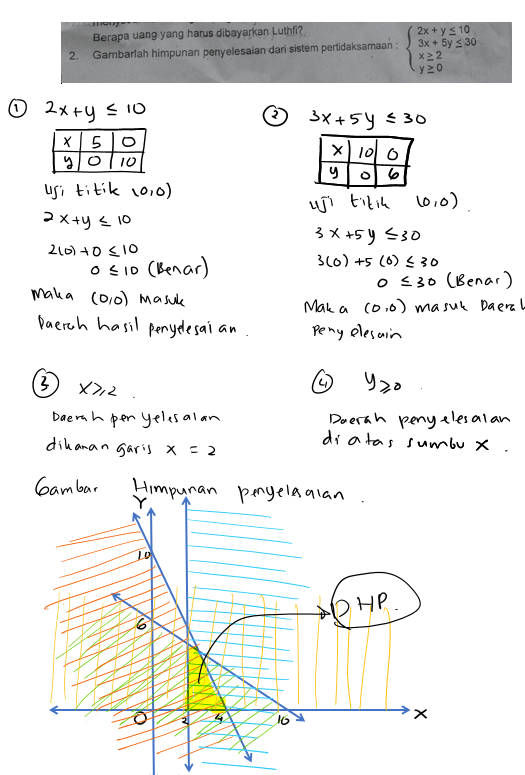 Berapa uang yang harus dibayarkan Luthfi?
2. Gambarlah himpunan penyelesaian dari sistem pertidaksamaan :
2x + y ≤ 10
3x + 5y ≤ 30
x ≥ 2
y ≥ 0
① 2x+y ≤ 10
x 5 0
y 0 10
uji titik (0,0)
2x+y ≤ 10
2(0)+0 ≤ 10
0 ≤ 10 (Benar)
Maka (0,0) Masuk
Daerah hasil penyelesaian.
② 3x+5y ≤ 30
x 10 0
y 0 6
uji titik (0,0)
3x+5y ≤ 30
3(0)+5(0) ≤ 30
0 ≤ 30 (Benar)
Maka (0,0) masuk Daerah
Penyelesain
③ x ≥ 2
Daerah penyelesaian
dikanan garis x = 2
④ y ≥ 0
Daerah penyelesaian
di atas sumbu x.
Gambar Himpunan penyelesaian.
Y
10
6
O 2 4 10 X
DHP.